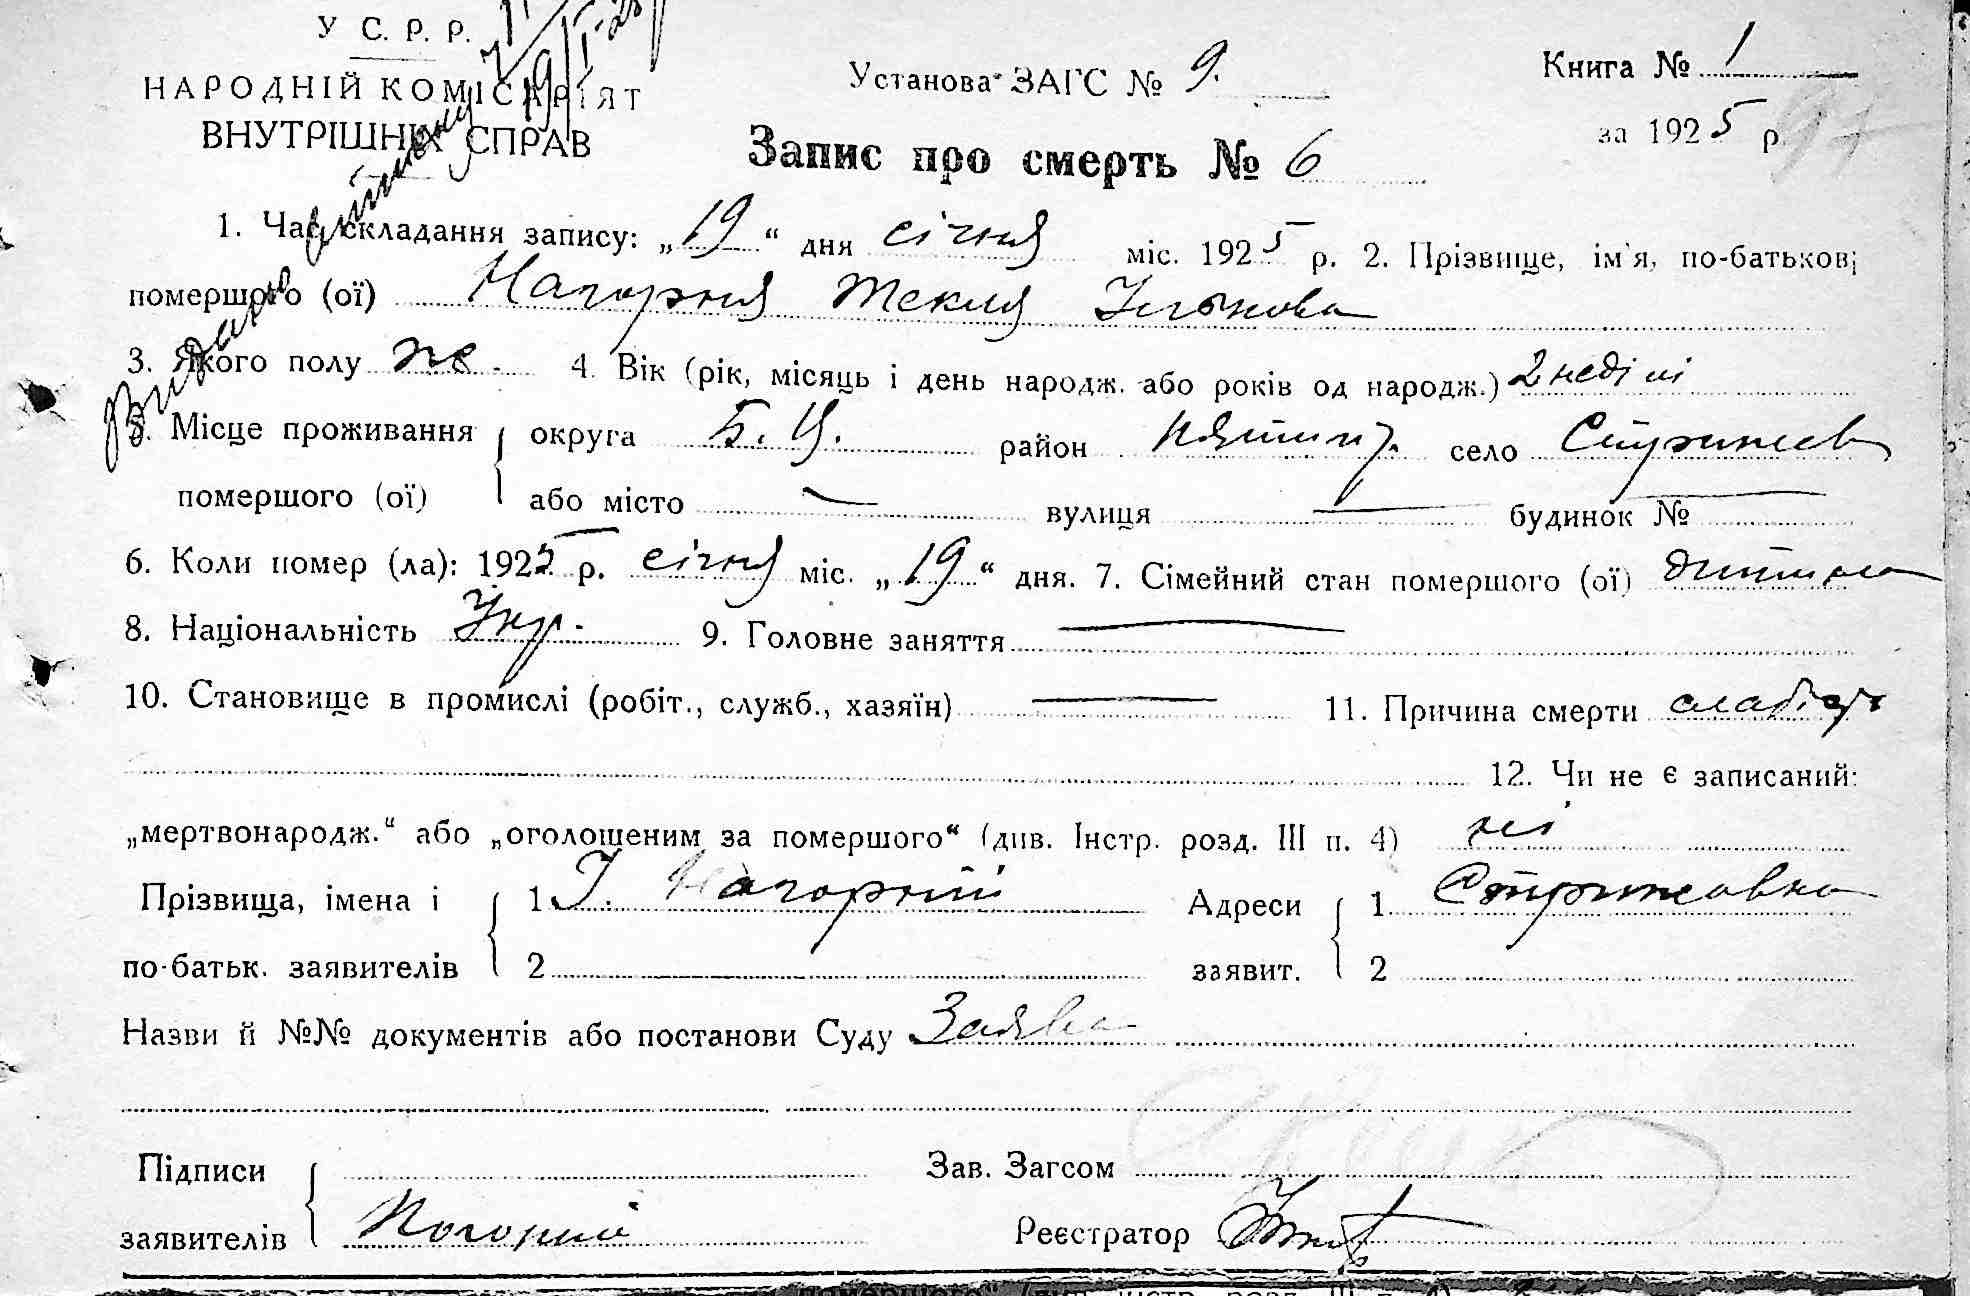 У С. Р. Р.
НАРОДНІЙ КОМІСАРІЯТ
ВНУТРІШНІХ СПРАВ
Установа ЗАГС № 9.
Книга № 1
за 1925 р.
Запис про смерть № 6
1. Час складання запису: „19“ дня січня міс. 1925 р. 2. Прізвище, ім'я, по-батькові
помершого (ої) Нагорня Текля
3. Якого полу ж. 4. Вік (рік, місяць і день народж. або років од народж.) 2 неділі
5. Місце проживання округа Б. Ц. район село
помершого (ої) або місто — вулиця — будинок № —
6. Коли помер (ла): 1925 р. січня міс. „19“ дня. 7. Сімейний стан помершого (ої) дитина
8. Національність Укр. 9. Головне заняття —
10. Становище в промислі (робіт., служб., хазяїн) — 11. Причина смерти слабість
12. Чи не є записаний:
„мертвонародж.“ або „оголошеним за помершого“ (див. Інстр. розд. III п. 4) ні
Прізвища, імена і 1 І. Нагорний Адреси 1 Стрижавка
по-батьк. заявителів 2 заявит. 2
Назви й №№ документів або постанови Суду Заява
Підписи Зав. Загсом
заявителів Нагорний Реєстратор
Видано